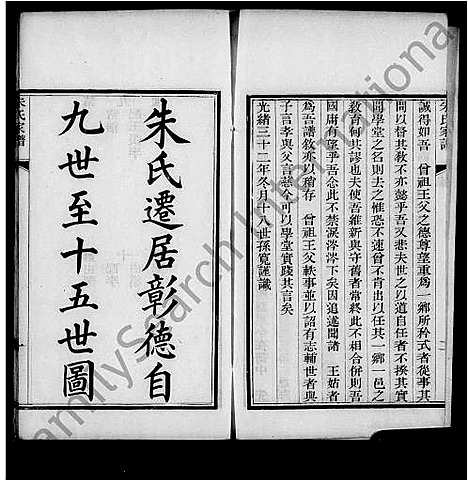 朱氏家譜
誠得如吾　曾祖王父之德尊望重爲一鄉所矜式者從事其
間以督其教不亦懿乎吾又悲夫世之以道自任者不揆其實
聞學堂之名則去之惟恐不速曾不肯出以任其一鄉一邑之
教育何其謬也夫使吾維新與守舊者常終此不相合併則吾
國庸有望乎吾念此不禁淚涔涔下矣因追述聞諸　王姑者
爲吾譜敘亦以稍存　曾祖王父軼事並以詔有志輔世者與
子言孝與父言慈今可以學堂實踐其言矣
光緒三十二年冬月十八世孫寬謹識
朱氏遷居彰德自
九世至十五世圖
朱氏家譜
FamilySearch International